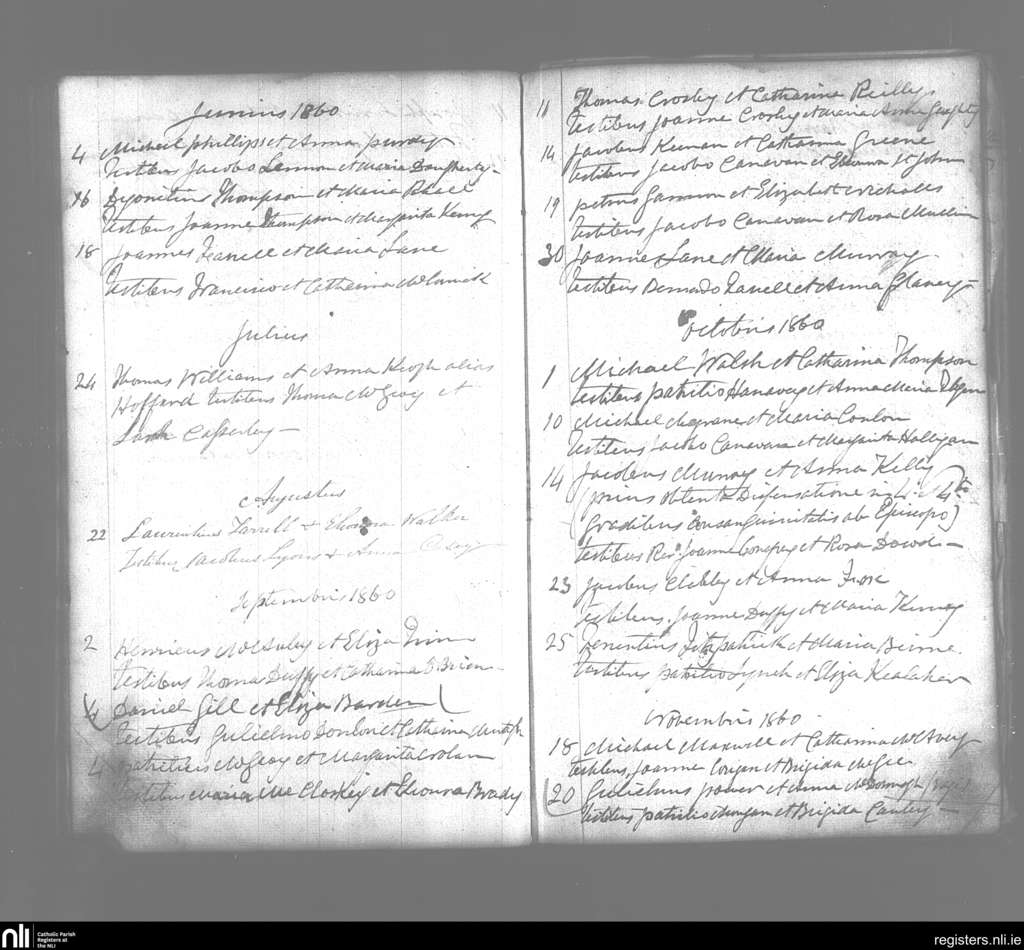 Junius 1860
4 Michael Phillips et Anna Purdy
Testibus Jacobo Lennon et Maria Daugherty
16 Dyonitius Thompson et Maria
Testibus Joanne Thompson et Margarita Kenny
18 Joannes Farrell et Maria Lane
Testibus Francisco et Catharina McCormick
Julius
24 Thomas Williams et Anna Keogh alias
Hoffard testibus Thoma McGeoy et
Casserley
Agustus
22 Laurentius Farrell + Eleonora Walker
Testibus Jacobus Lyons + Anna Casey
Septembris 1860
2 Henricus McAuley et Eliza Finn
Testibus Thoma Duffy et Catharina O Brien
4 Daniel Gill et Eliza Barden
Testibus Gulielmo Donlon et Catharina
4 Patritius McGeoy et Margarita Nolan
Testibus Maria McCloskey et Eleonora Brady
11 Thomas Crosby et Catharina Reilly
Testibus Joanne Crosby et Maria Anna Geraghty
14 Jacobus Keenan et Catharina Greene
Testibus Jacobo Canavan et St John
19 Petrus Gammon et Elizabet Nicholls
Testibus Jacobo Canavan et Rosa
30 Joannes Lane et Maria Murray
Testibus Bernardo Farrell et Anna Slavery
Octobris 1860
1 Michael Walsh et Catharina Thompson
Testibus Patritio Hanavey et Anna Maria
10 Michael Magrane et Maria Conlon
Testibus Jacobo Canavan et Margarita Halligan
14 Jacobus Murray et Anna Kelly
(prius obtenta Dispensatione in 4 i 4to
Gradibus Consanguinitatis ab Episcopo)
Testibus Rev Joanne Conefrey et Rosa Dowd
23 Jacobus Clibby et Anna
Testibus Joanne Duffy et Maria Kenny
25 Terrentius Fitzpatrick et Maria Beirne
Testibus Patritio Lynch et Eliza Kealaher
Novembris 1860
18 Michael Maxwell et Catharina McAvey
Testibus Joanne Corgan et Brigida McGee
20 Gulielmus Power et Anna McDonogh
Testibus Patritio Mungan et Brigida Cauley
nli
Catholic Parish
Registers at
the NLI
registers.nli.ie